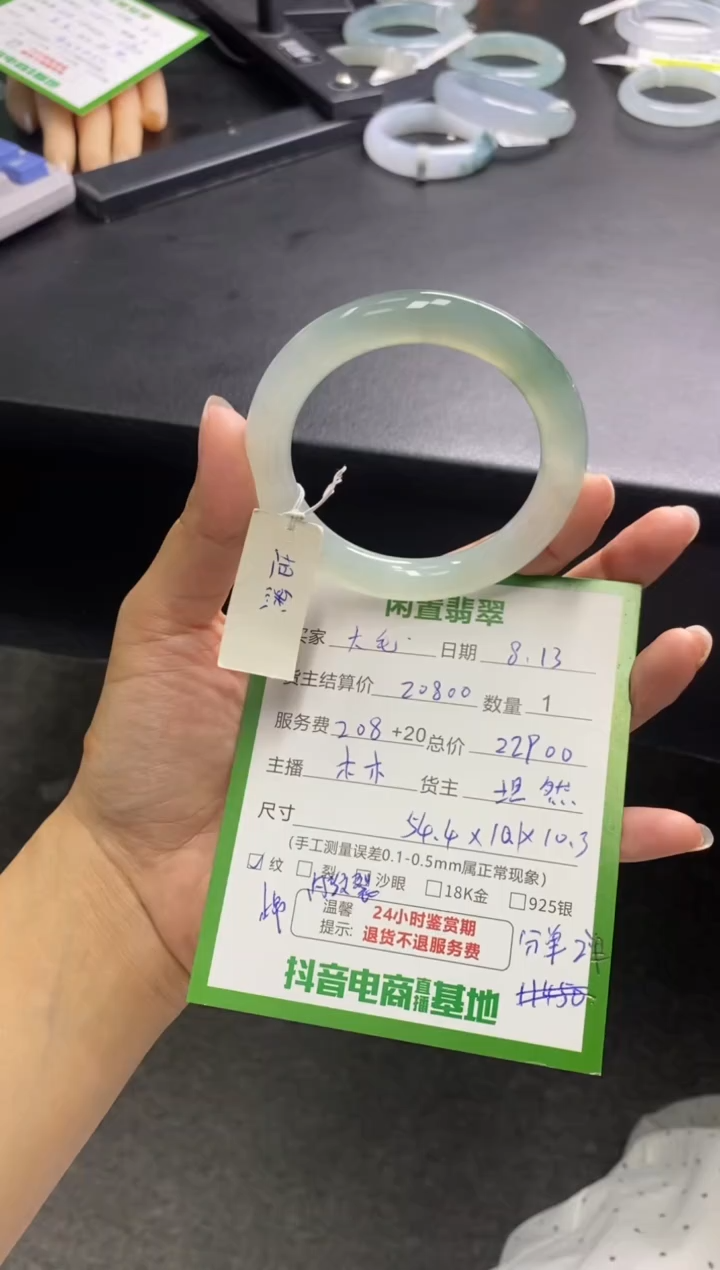 闲置翡翠
买家 大毛 日期 8.13
货主结算价 20800 数量 1
服务费 208 +20 总价 22900
主播 木木 货主 坦然
尺寸 54.4×10.1×10.3
(手工测量误差0.1-0.5mm属正常现象)
☑纹 □裂 □沙眼 □18K金 □925银
内纹裂
温馨提示: 24小时鉴赏期
退货不退服务费
分单2单
抖音电商直播基地